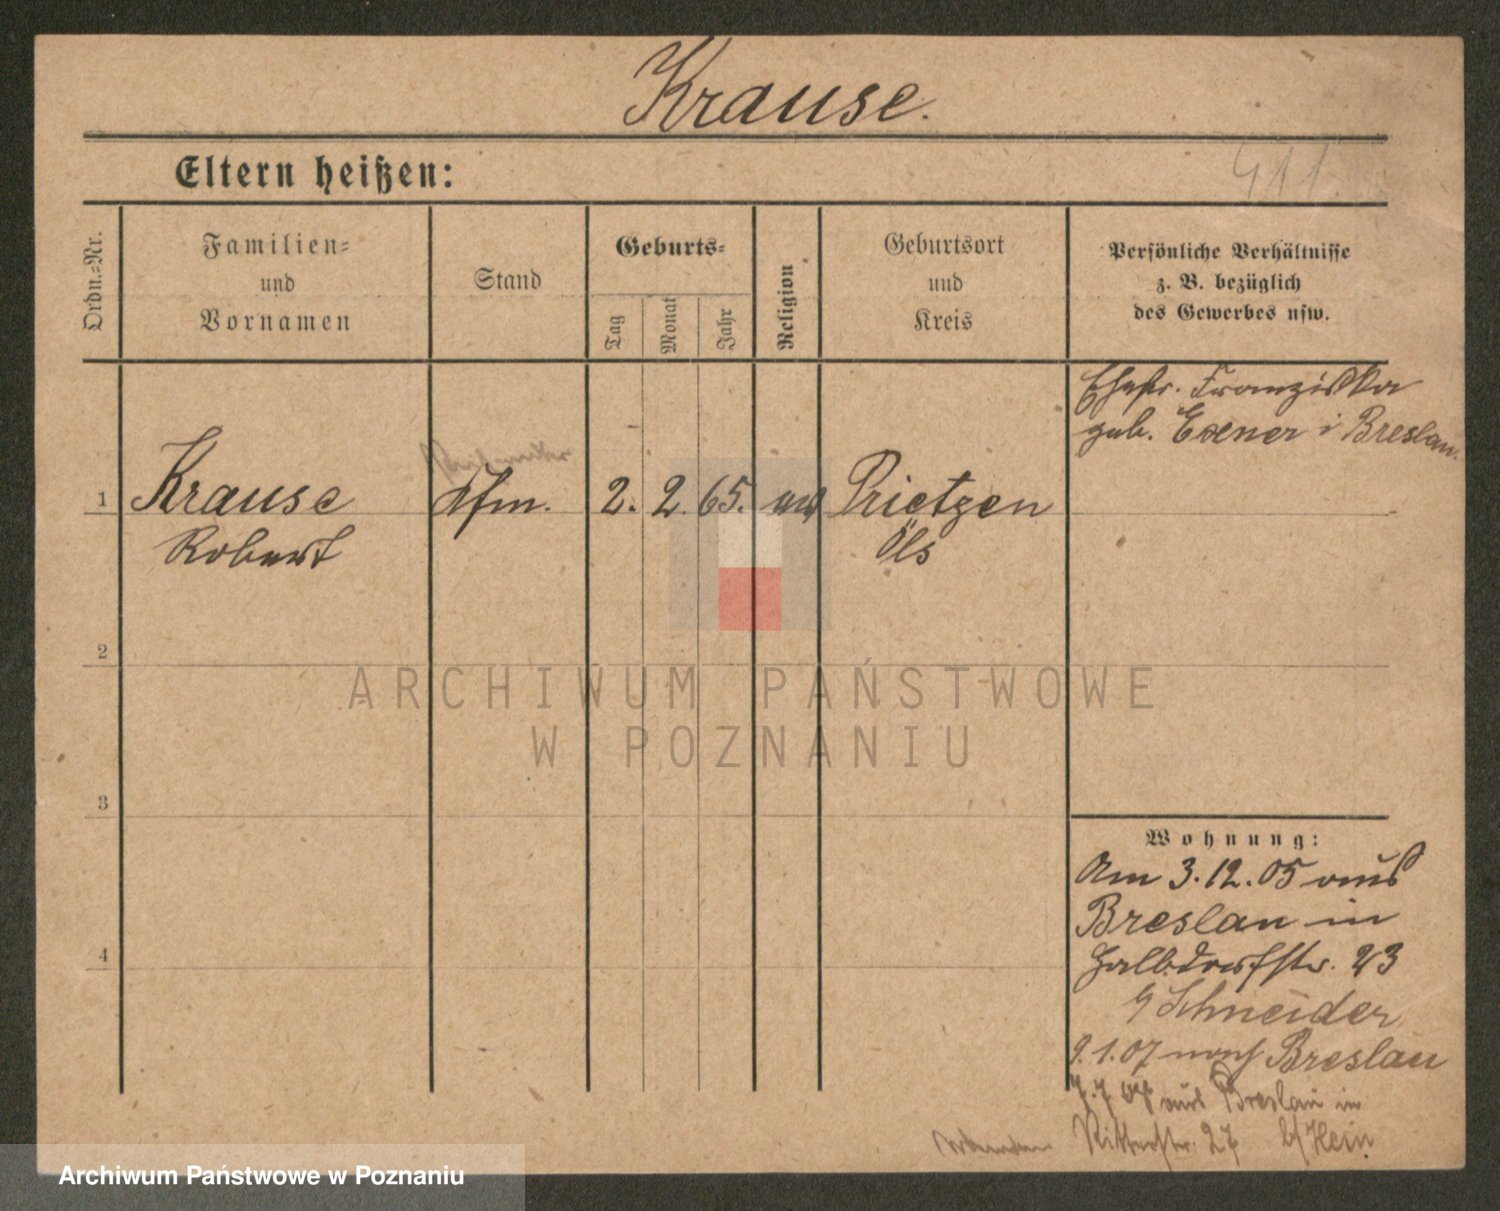 Krause.
Eltern heißen:
911.
Ordn.=Nr.
Familien=
und
Vornamen
Stand
Geburts=
Tag
Monat
Jahr
Religion
Geburtsort
und
Kreis
Persönliche Verhältnisse
z. B. bezüglich
des Gewerbes usw.
Ehefr. Franziska
geb. Exener i Breslau.
1 Krause Kfm. 2. 2. 65. Prietzen
Robert Öls
2
3
4
Wohnung:
Am 3.12.05 aus
Breslau in
Halbdorfstr. 23
b/ Schneider
9.1.07 nach Breslau
7.7 08 aus Breslau in
Ritterstr. 27 b/ Hein
ARCHIWUM PAŃSTWOWE
W POZNANIU
Archiwum Państwowe w Poznaniu